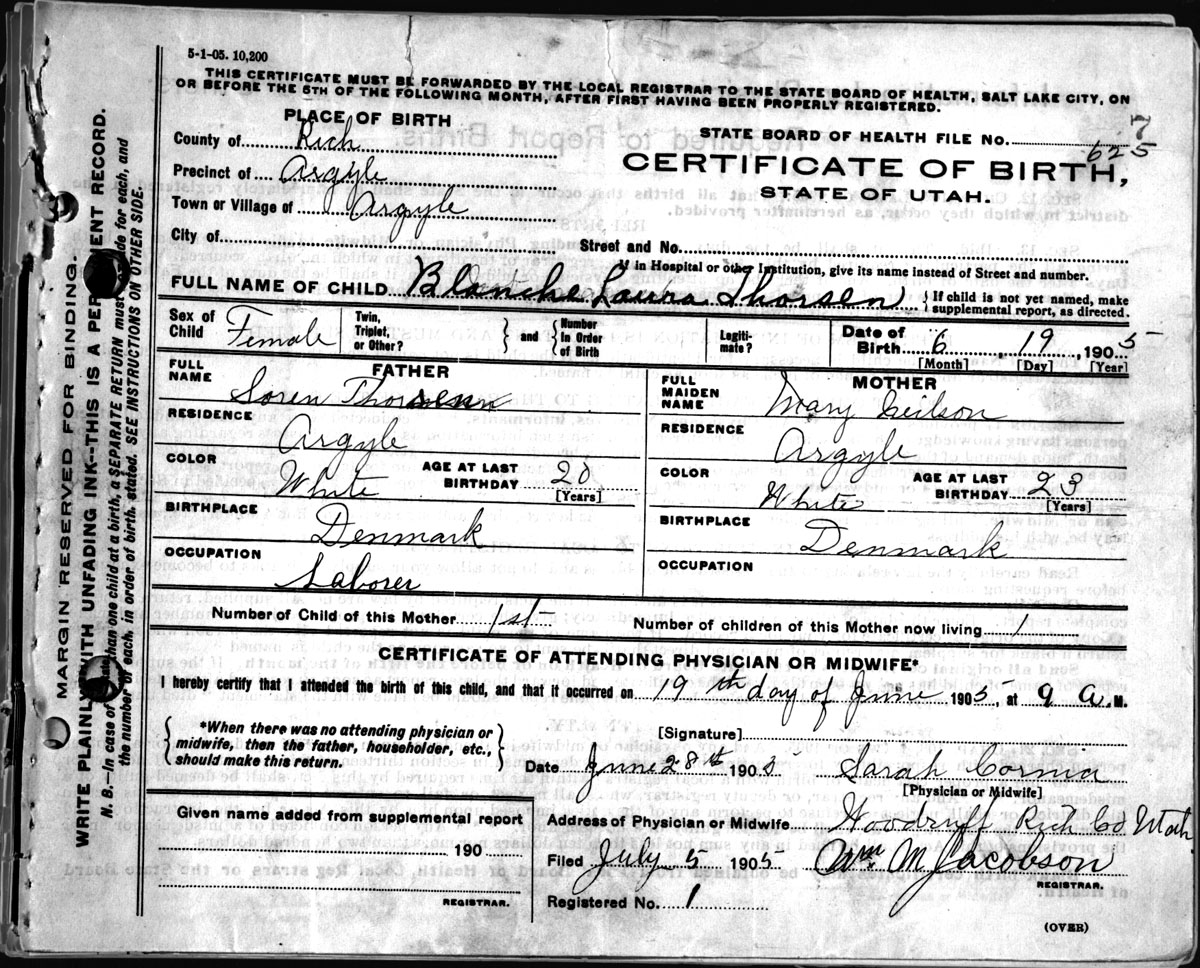 5-1-05. 10,200
THIS CERTIFICATE MUST BE FORWARDED BY THE LOCAL REGISTRAR TO THE STATE BOARD OF HEALTH, SALT LAKE CITY, ON
OR BEFORE THE 5TH OF THE FOLLOWING MONTH, AFTER FIRST HAVING BEEN PROPERLY REGISTERED.
PLACE OF BIRTH
County of Rich
Precinct of Argyle
Town or Village of Argyle
City of
STATE BOARD OF HEALTH FILE NO. 625
7
CERTIFICATE OF BIRTH,
STATE OF UTAH.
Street and No.
If in Hospital or other Institution, give its name instead of Street and number.
FULL NAME OF CHILD Blanche Laura Thorsen { If child is not yet named, make
supplemental report, as directed.
Sex of Child Female
Twin, Triplet, or Other? } and { Number In Order of Birth
Legiti- mate?
Date of Birth 6 19, 1905
[Month] [Day] [Year]
FATHER
FULL NAME Soren Thorsen
RESIDENCE Argyle
COLOR White AGE AT LAST BIRTHDAY 20
[Years]
BIRTHPLACE Denmark
OCCUPATION Laborer
MOTHER
FULL MAIDEN NAME Mary Neilson
RESIDENCE Argyle
COLOR White AGE AT LAST BIRTHDAY 23
[Years]
BIRTHPLACE Denmark
OCCUPATION
Number of Child of this Mother 1st Number of children of this Mother now living 1
CERTIFICATE OF ATTENDING PHYSICIAN OR MIDWIFE*
I hereby certify that I attended the birth of this child, and that it occurred on 19th day of June 1905, at 9 a. M.
{ *When there was no attending physician or
midwife, then the father, householder, etc.,
should make this return. }
[Signature]
Date June 28th 1905 Sarah Cornia
[Physician or Midwife]
Given name added from supplemental report
190
REGISTRAR.
Address of Physician or Midwife Woodruff Rich Co Utah
Filed July 5 1905 Wm M Jacobson
REGISTRAR.
Registered No. 1
(OVER)
MARGIN RESERVED FOR BINDING.
WRITE PLAINLY WITH UNFADING INK--THIS IS A PERMANENT RECORD.
N. B.—In case of more than one child at a birth, a SEPARATE RETURN must be made for each, and
the number of each, in order of birth, stated. SEE INSTRUCTIONS ON OTHER SIDE.